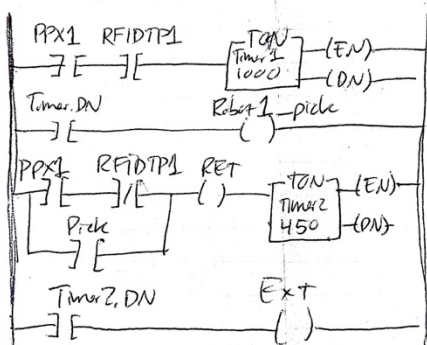 PPX1 RFIDTP1 TON (EN)
Timer1
1000 (DN)
Timer.DN Robot1_pick
PPX1 RFIDTP1 RET TON (EN)
Timer2
Pick 450 (DN)
Timer2.DN Ext